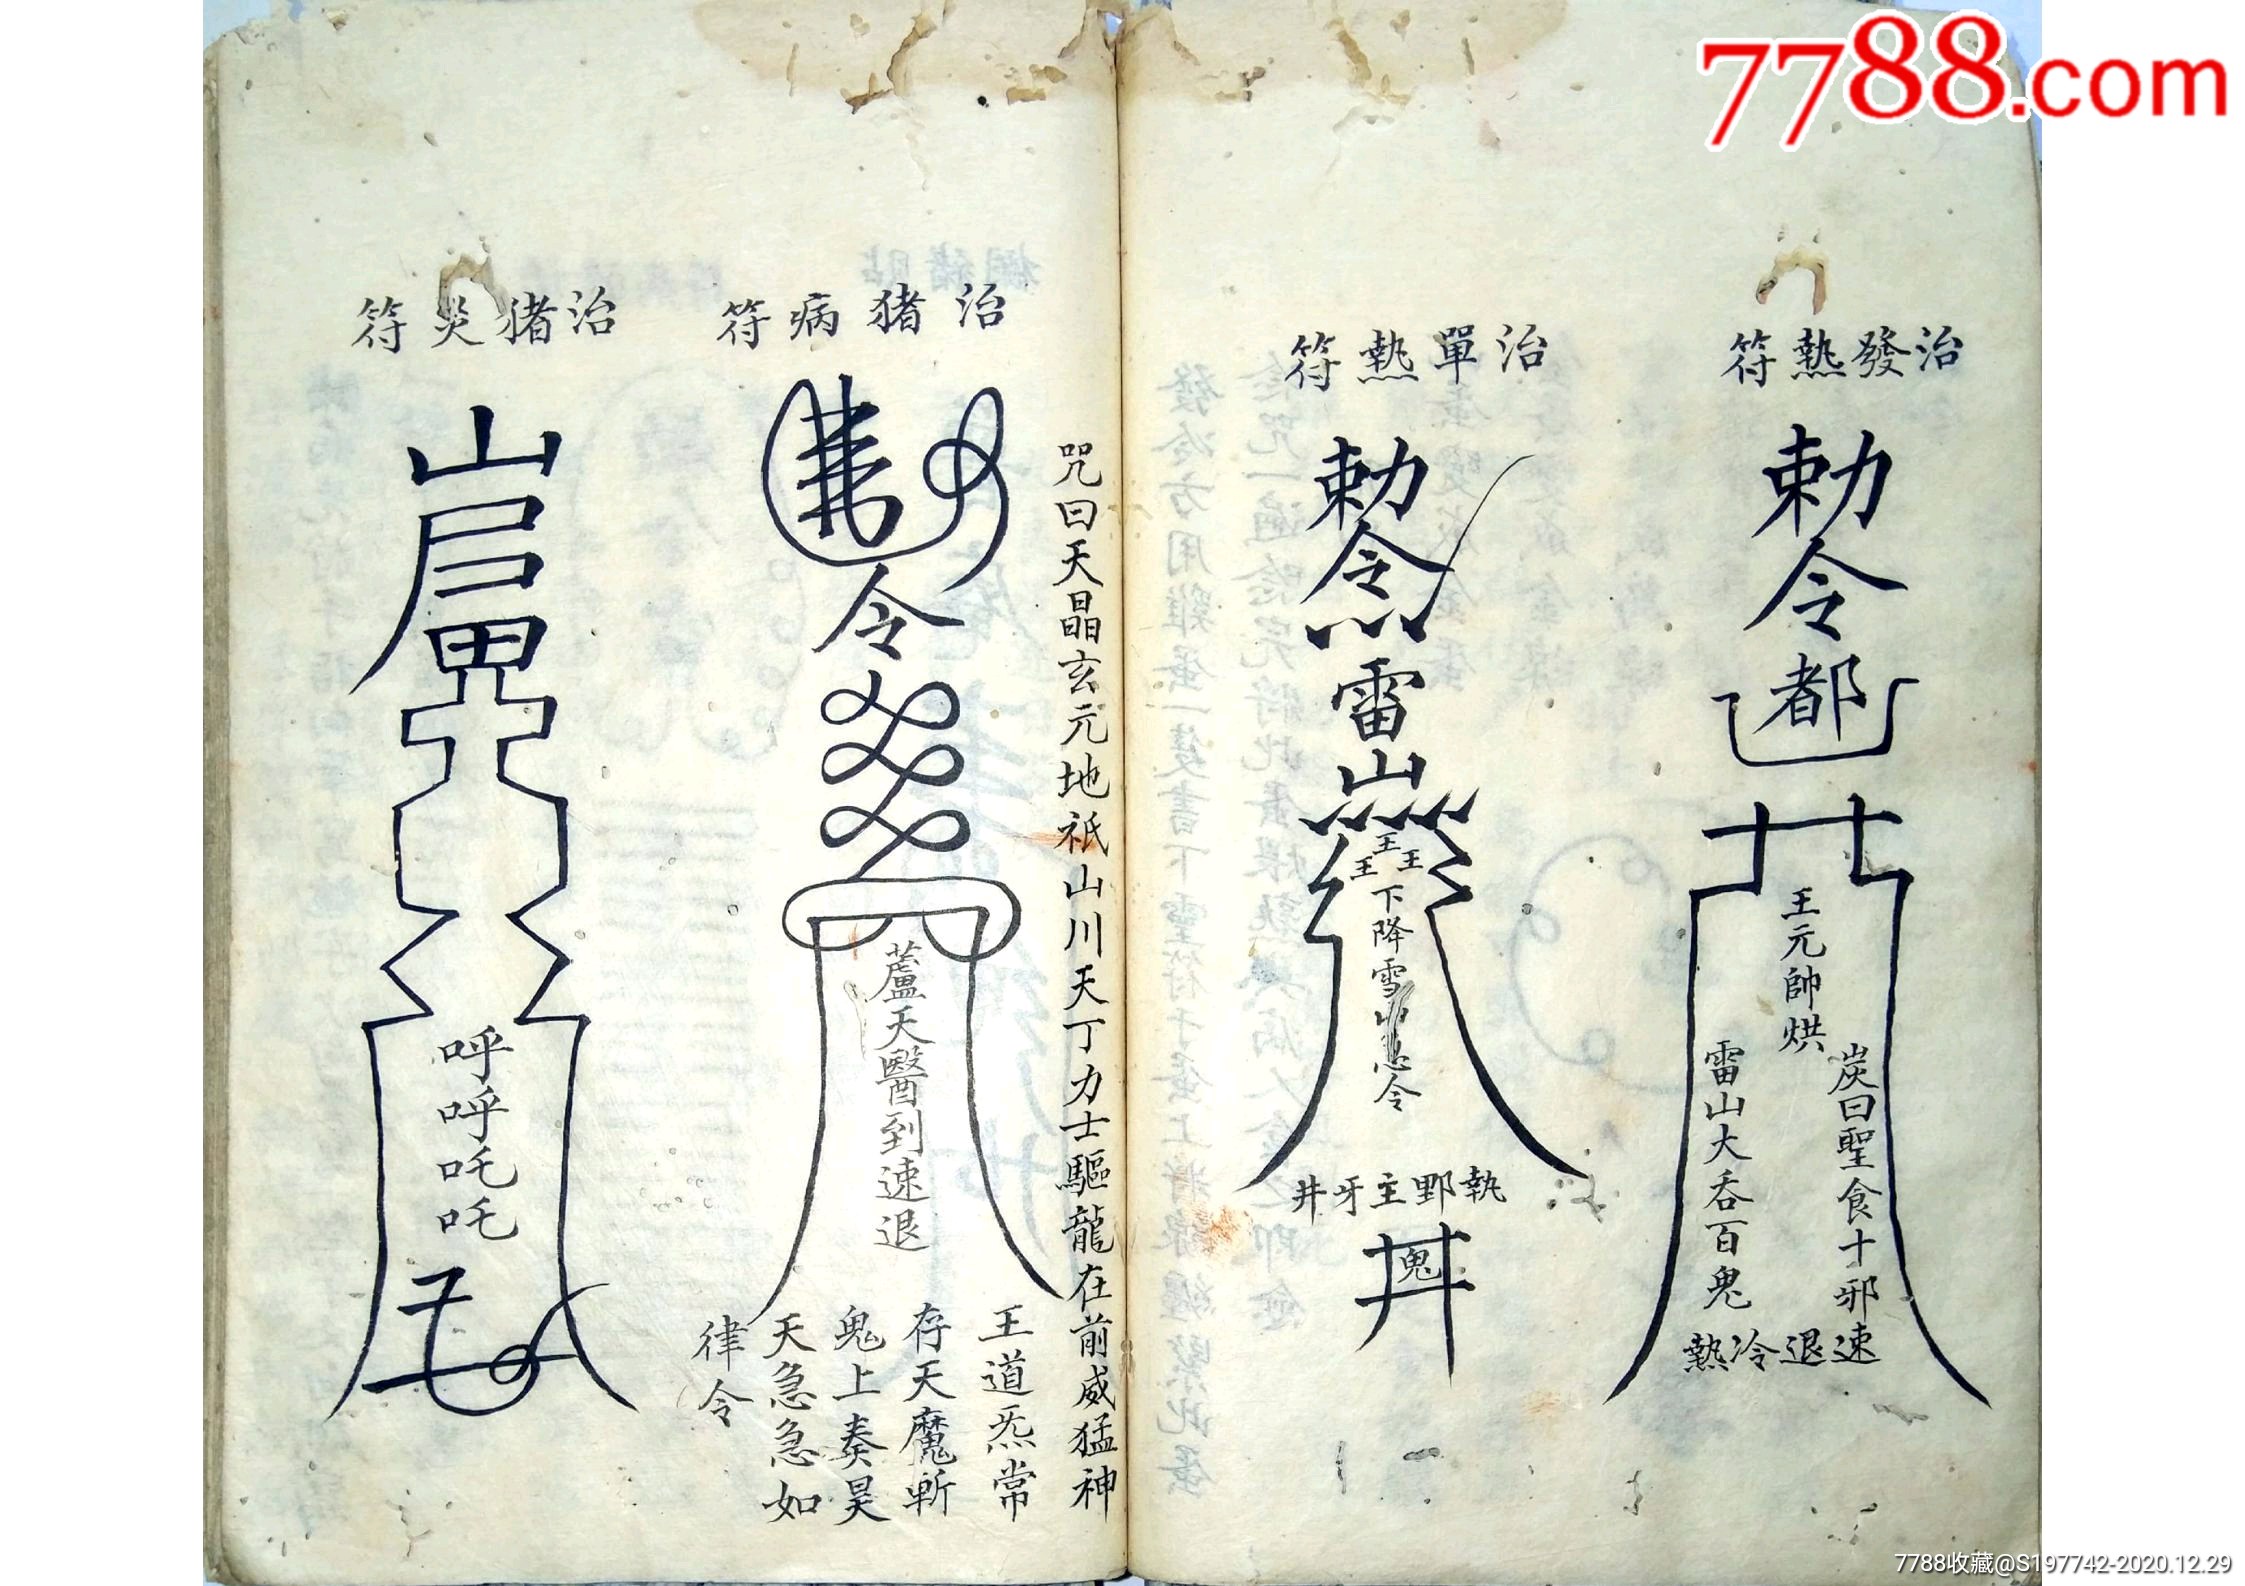 7788.com
治發熱符
勅令都
王元帥烘
炭曰聖食十邪
雷山大吞百鬼
速退冷熱
治單熱符
勅令
雷山
王王王
下降雪山急令
執野主牙井
鬼
咒曰天晶玄元地祇山川天丁力士驅龍在前威猛神
王道炁常
存天魔斬
鬼上奏昊
天急急如
律令
治猪病符
令
蘆天醫到速退
治猪炎符
山
呼呼吒吒
7788收藏@S197742-2020.12.29